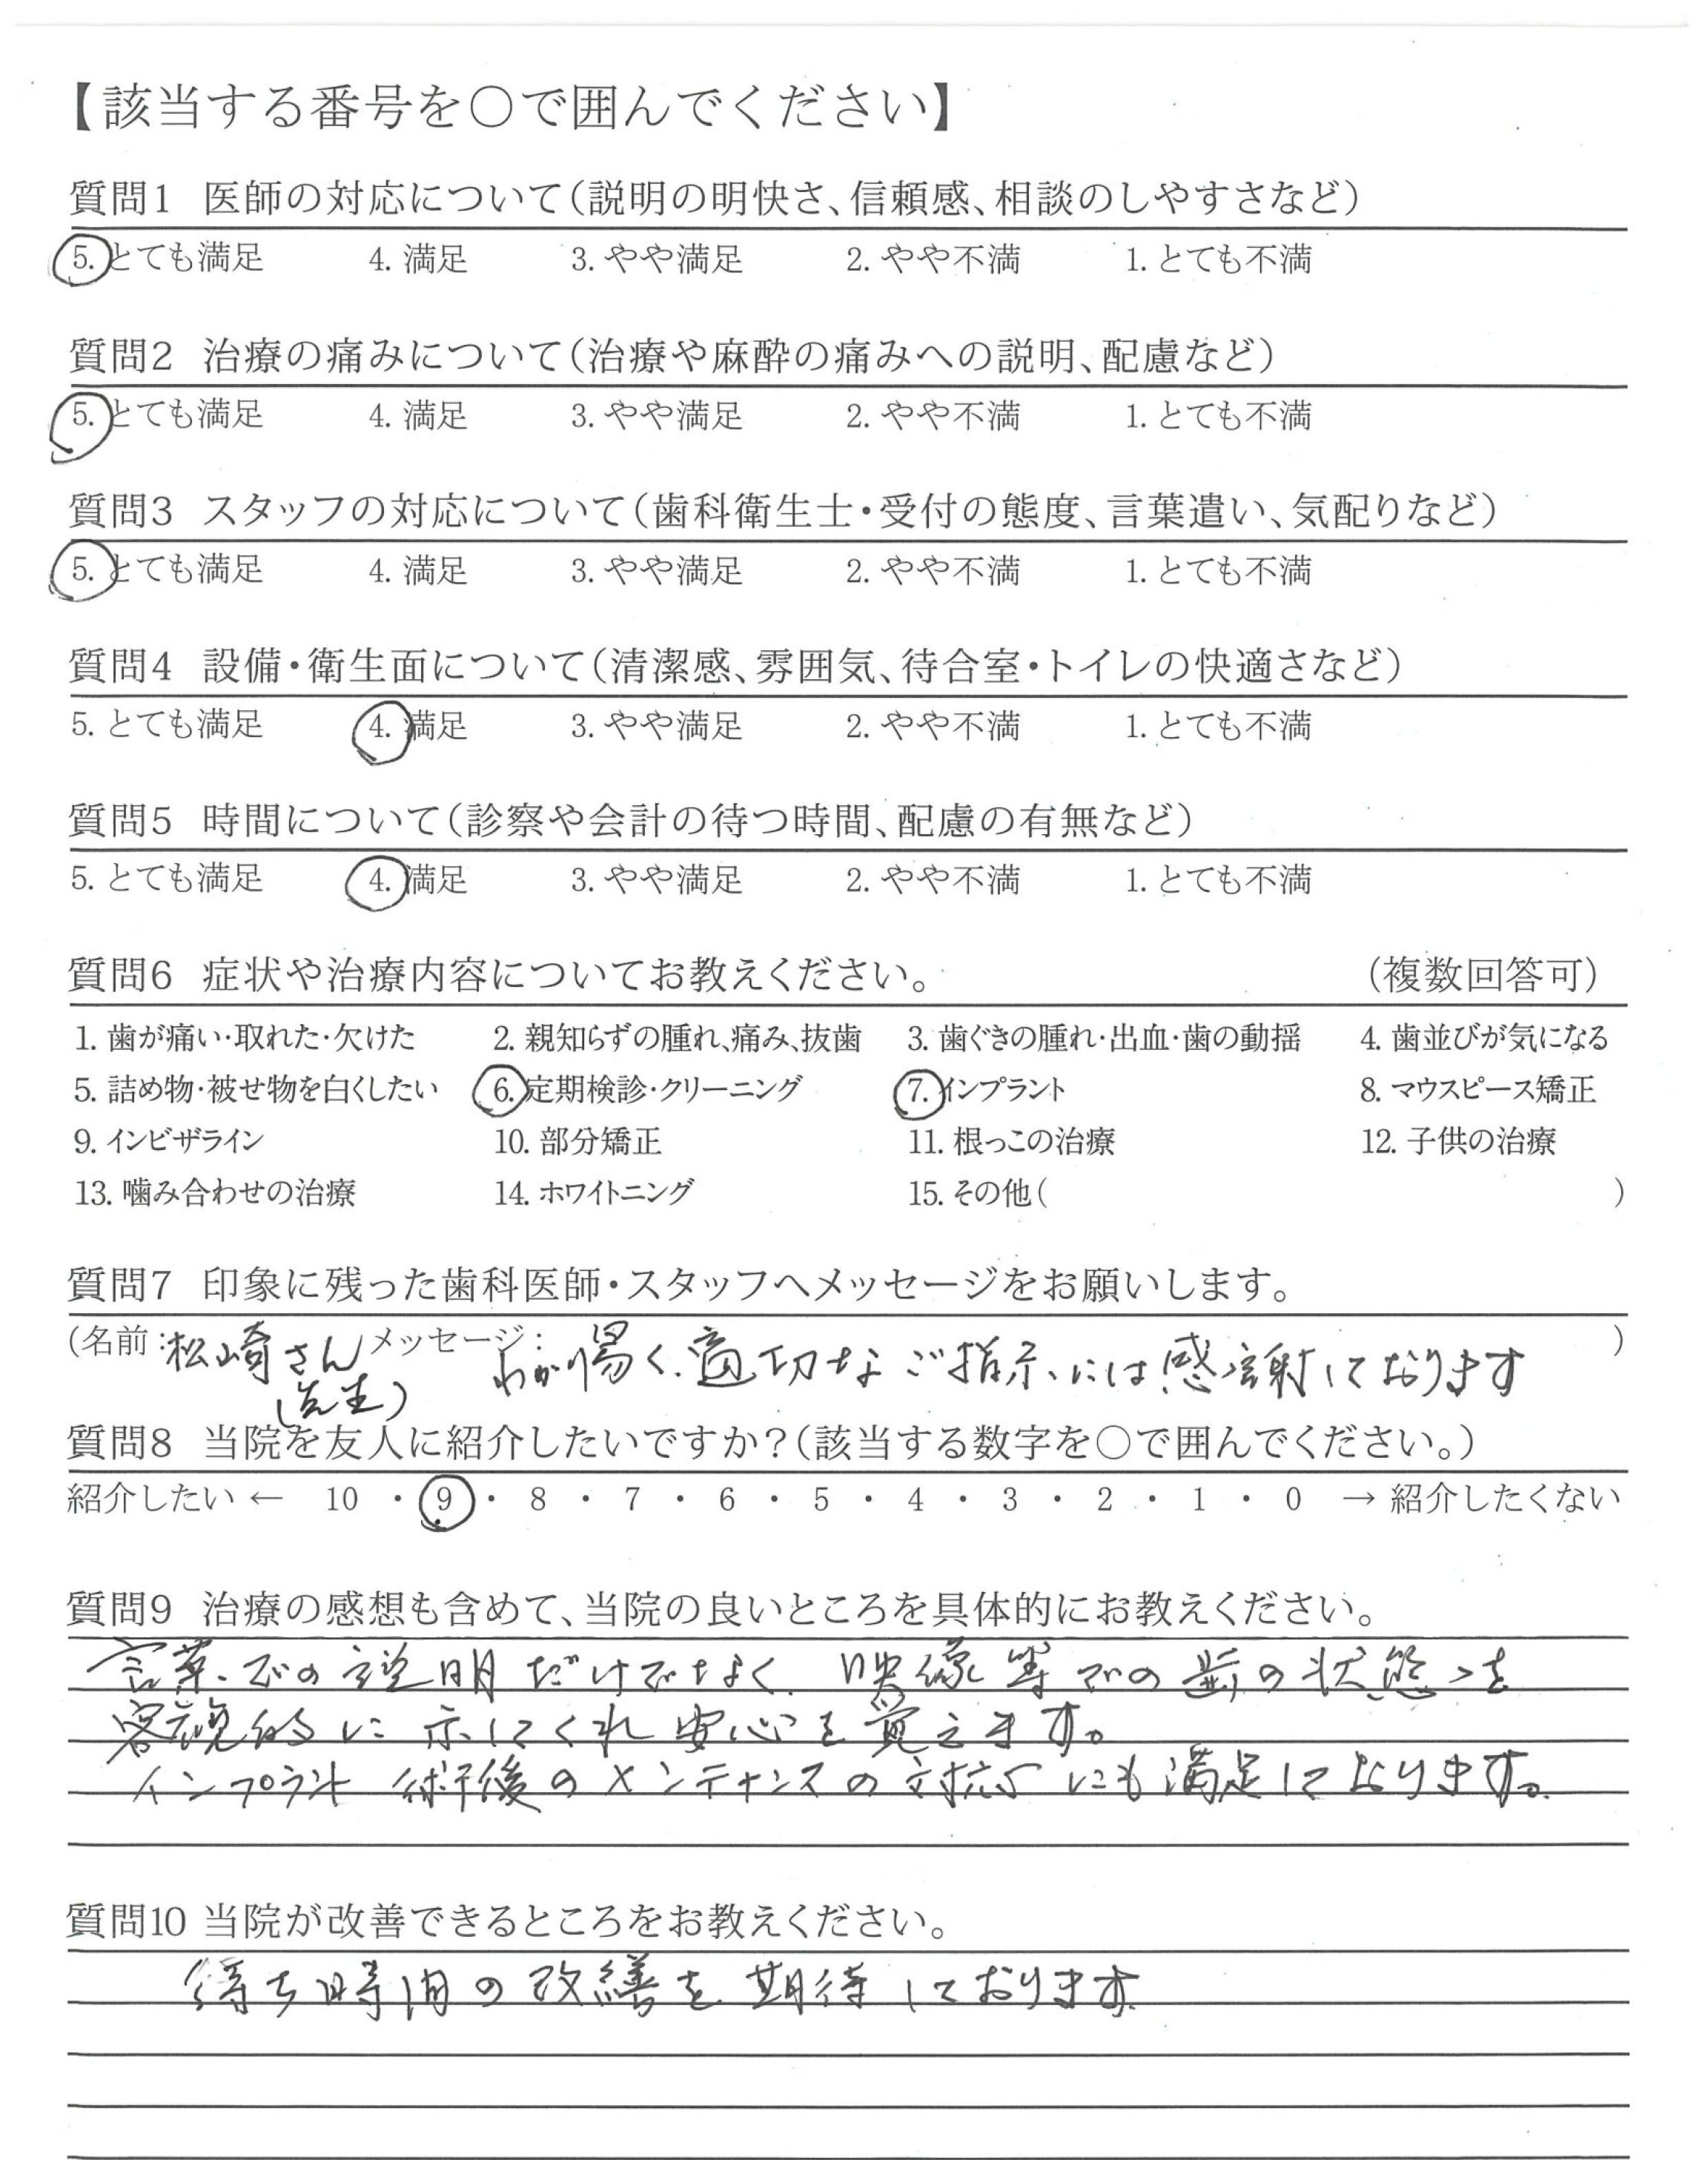 【該当する番号を〇で囲んでください】
質問1 医師の対応について(説明の明快さ、信頼感、相談のしやすさなど)
5. とても満足 4. 満足 3. やや満足 2. やや不満 1. とても不満
質問2 治療の痛みについて(治療や麻酔の痛みへの説明、配慮など)
5. とても満足 4. 満足 3. やや満足 2. やや不満 1. とても不満
質問3 スタッフの対応について(歯科衛生士・受付の態度、言葉遣い、気配りなど)
5. とても満足 4. 満足 3. やや満足 2. やや不満 1. とても不満
質問4 設備・衛生面について(清潔感、雰囲気、待合室・トイレの快適さなど)
5. とても満足 4. 満足 3. やや満足 2. やや不満 1. とても不満
質問5 時間について(診察や会計の待つ時間、配慮の有無など)
5. とても満足 4. 満足 3. やや満足 2. やや不満 1. とても不満
質問6 症状や治療内容についてお教えください。 (複数回答可)
1. 歯が痛い・取れた・欠けた 2. 親知らずの腫れ、痛み、抜歯 3. 歯ぐきの腫れ・出血・歯の動揺 4. 歯並びが気になる
5. 詰め物・被せ物を白くしたい 6. 定期検診・クリーニング 7. インプラント 8. マウスピース矯正
9. インビザライン 10. 部分矯正 11. 根っこの治療 12. 子供の治療
13. 噛み合わせの治療 14. ホワイトニング 15. その他( )
質問7 印象に残った歯科医師・スタッフへメッセージをお願いします。
(名前:松崎さん メッセージ: わかり易く、適切なご指示には感謝しております )
(先生)
質問8 当院を友人に紹介したいですか?(該当する数字を〇で囲んでください。)
紹介したい ← 10 ・ 9 ・ 8 ・ 7 ・ 6 ・ 5 ・ 4 ・ 3 ・ 2 ・ 1 ・ 0 → 紹介したくない
質問9 治療の感想も含めて、当院の良いところを具体的にお教えください。
言葉での説明だけでなく、映像等での歯の状態を
客観的に示してくれ安心を覚えます。
インプラント術後のメンテナンスの対応にも満足しております。
質問10 当院が改善できるところをお教えください。
待ち時間の改善を期待しております